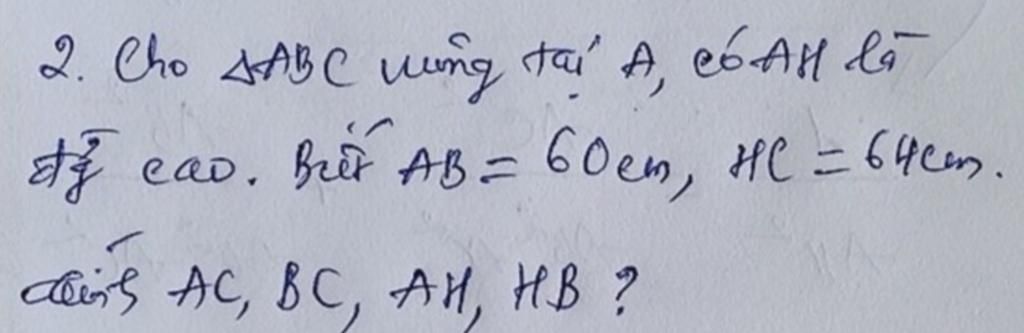 2. Cho ΔABC vuông tại A, có AH là
đg cao. Biết AB = 60cm, HC = 64cm.
Tính AC, BC, AH, HB ?